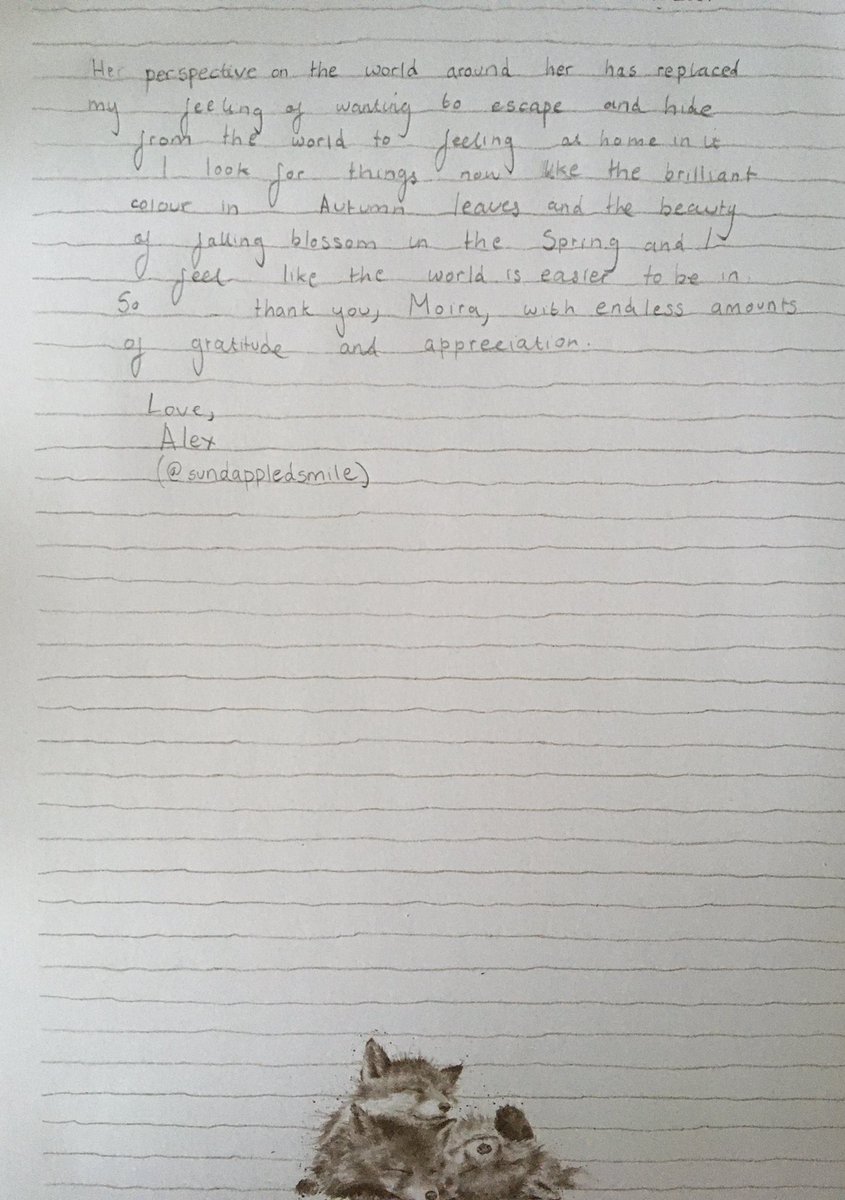 Her perspective on the world around her has replaced
my feeling of wanting to escape and hide
from the world to feeling at home in it
I look for things now like the brilliant
colour in Autumn leaves and the beauty
of falling blossom in the Spring and I
feel like the world is easier to be in.
So thank you, Moira, with endless amounts
of gratitude and appreciation.
Love,
Alex
(@sundappledsmile)